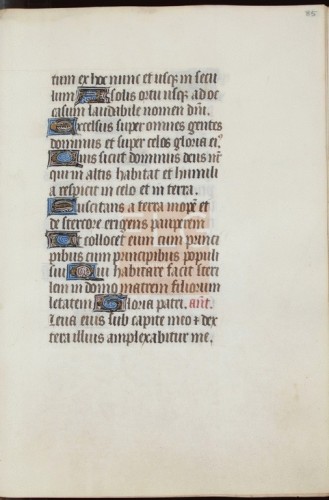 tum ex hoc nunc et usq; in secu
lum A solis ortu usq; ad oc
casum laudabile nomen dñi.
Excelsus super omnes gentes
dominus et super celos gloria ei⁹
Quis sicut dominus deus nr̃
qui in altis habitat et humili
a respicit in celo et in terra.
Suscitans a terra inopẽ et
de stercore erigens pauperem
Ut collocet eum cum princi
pibus cum principibus populi
sui Qui habitare facit steri
lem in domo matrem filiorum
letatem Gloria patri. añt.
Leva eius sub capite meo et dex
tera illius amplexabitur me.